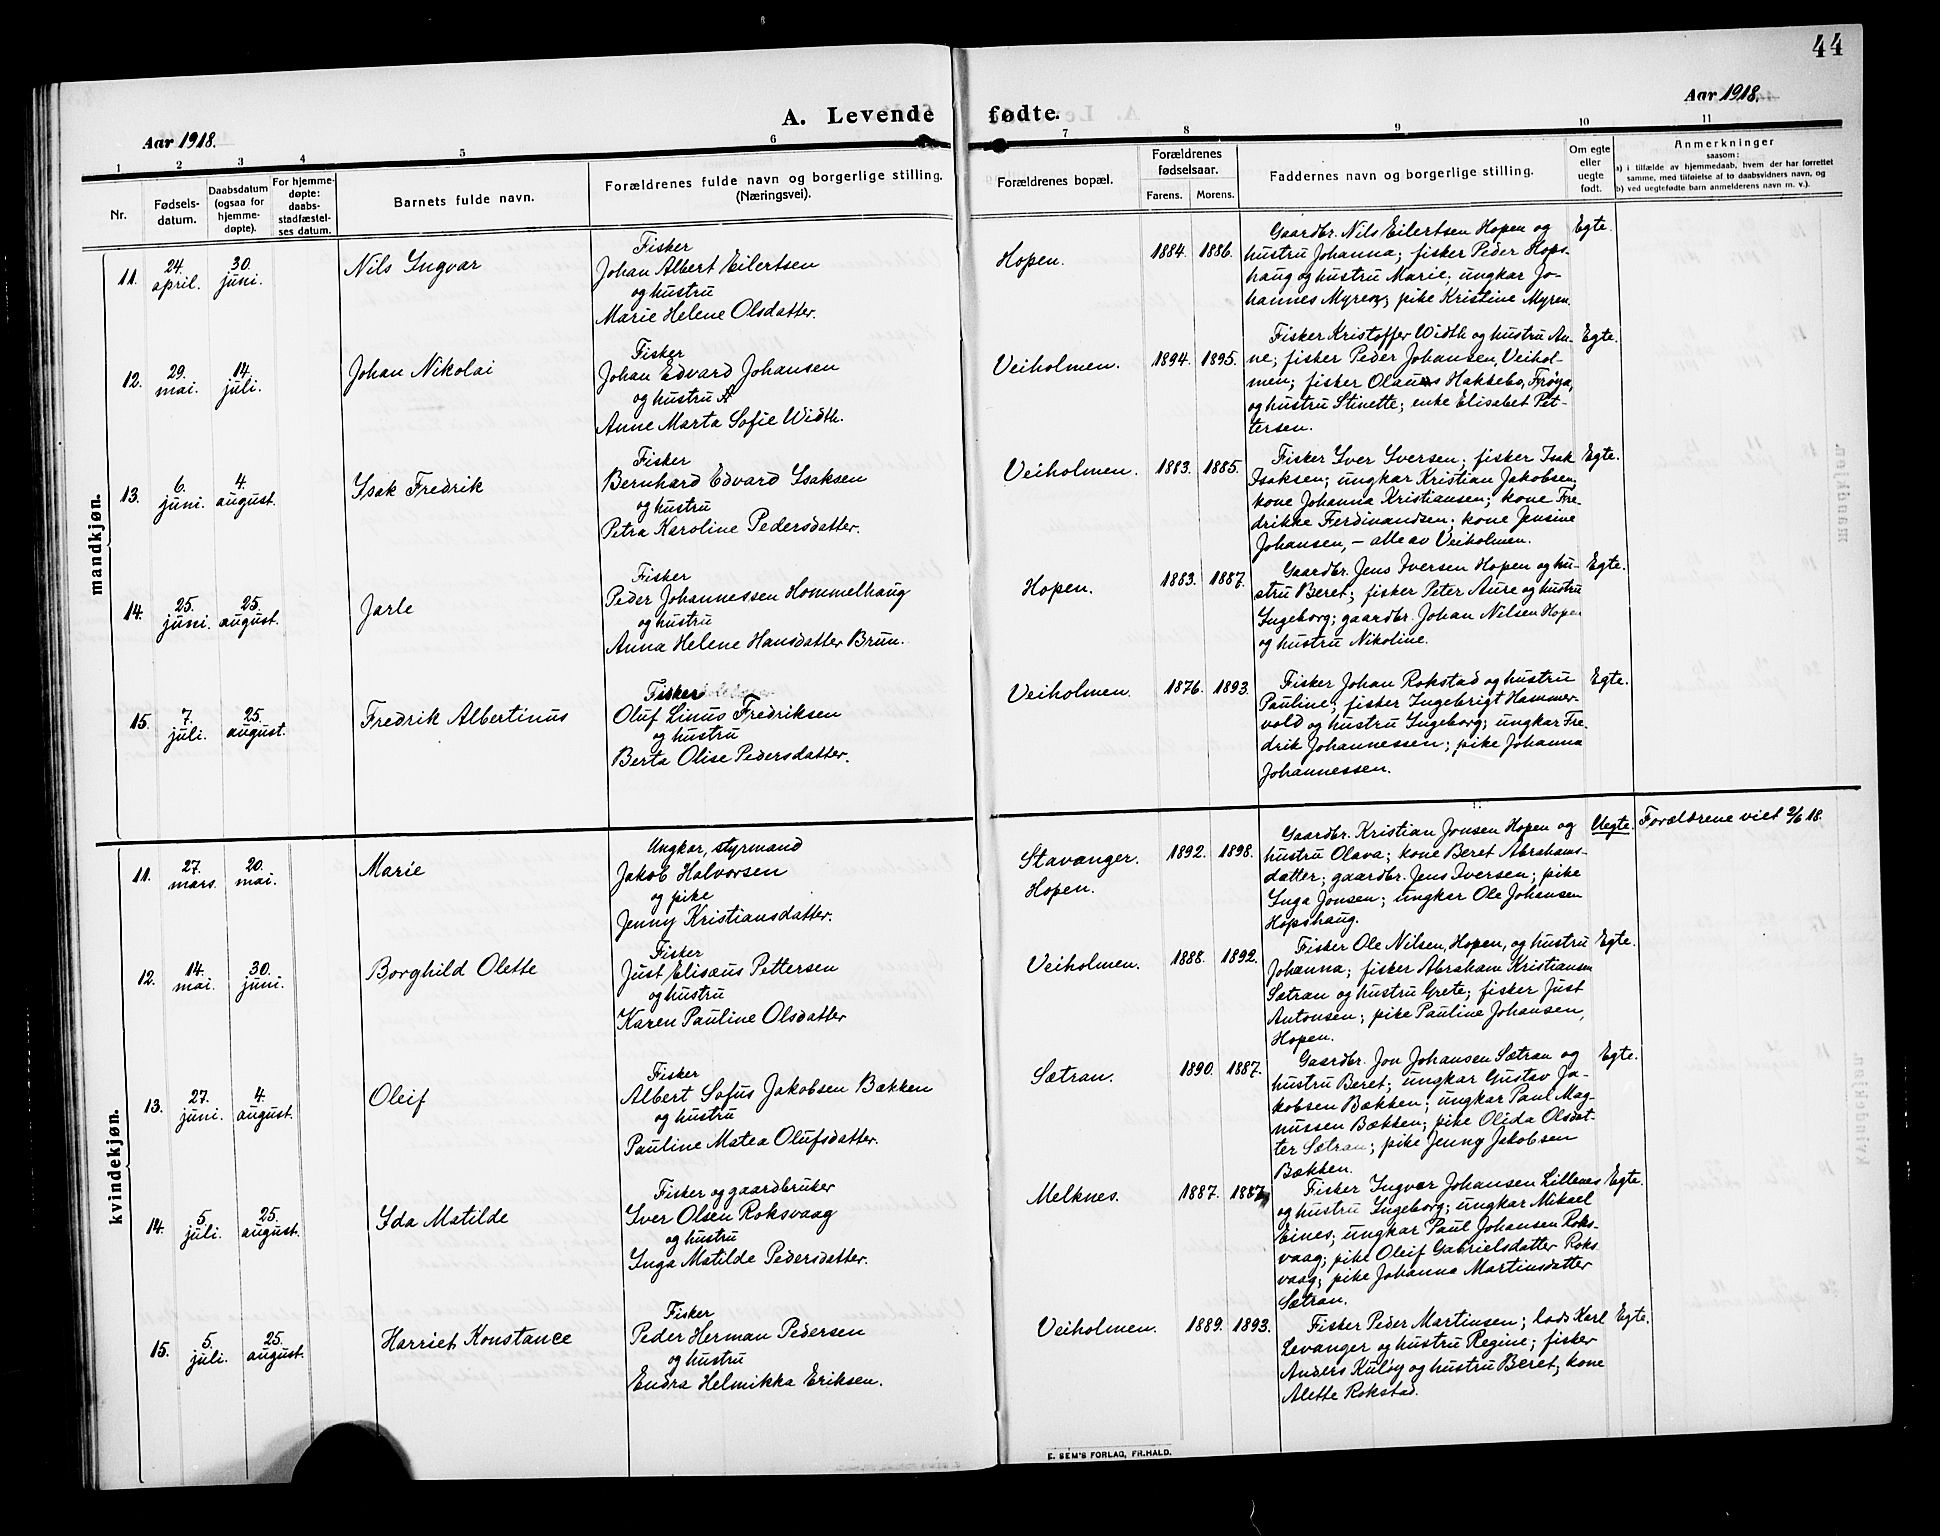 44
A. Levende fødte.
Aar 1918.
Aar 1918.
1 2 3 4 5 6 7 8 9 10 11
Nr.
Fødsels-
datum.
Daabsdatum
(ogsaa for
hjemme-
døpte).
For hjemme-
døpte:
daabs-
stadfæstel-
ses datum.
Barnets fulde navn.
Forældrenes fulde navn og borgerlige stilling.
(Næringsvei).
Forældrenes bopæl.
Forældrenes
fødselsaar.
Farens. Morens.
Faddernes navn og borgerlige stilling.
Om egte
eller
uegte
født.
Anmerkninger
saasom:
a) i tilfælde av hjemmedaab, hvem der har forrettet
samme, med tilføielse af to daabsvidners navn, og
b) ved uegtefødte barn anmelderens navn m. v.).
mandkjøn.
11. 24. april. 30. juni. Nils Ingvar
Fisker
Johan Albert Eilertsen
og hustru
Marie Helene Olsdatter.
Hopen. 1884. 1886.
Gaardbr. Nils Eilertsen Hopen og
hustru Johanna; fisker Peder Hops-
haug og hustru Marie; ungkar Jo-
hannes Myren; pike Kristine Myren.
Egte.
12. 29. mai. 14. juli. Johan Nikolai
Fisker
Johan Edvard Johansen
og hustru A
Anne Marta Sofie Width.
Veiholmen. 1894. 1895.
Fisker Kristoffer Width og hustru An-
ne; fisker Peder Johansen, Veihol-
men; fisker Olaus Hakkebo, Frøya,
og hustru Stinette; enke Elisabet Pet-
tersen.
Egte.
13. 6. juni. 4. august. Isak Fredrik
Fisker
Bernhard Edvard Isaksen
og hustru
Petra Karoline Pedersdatter.
Veiholmen. 1883. 1885.
Fisker Iver Iversen; fisker Isak
Isaksen; ungkar Kristian Jakobsen;
kone Johanna Kristiansen; kone Fre-
drikke Ferdinandsen; kone Jensine
Johansen, - alle av Veiholmen.
Egte.
14. 25. juni. 25. august. Jarle
Fisker
Peder Johannessen Hommelhaug
og hustru
Anna Helene Hansdatter Brun.
Hopen. 1883. 1887.
Gaardbr. Jens Iversen Hopen og hu-
stru Beret; fisker Peter Aure og hustru
Ingeborg; gaardbr. Johan Nilsen Hopen
og hustru Nikoline.
Egte.
15. 7. juli. 25. august. Fredrik Albertinus
Fisker
Oluf Linus Fredriksen
og hustru
Berta Olise Pedersdatter.
Veiholmen. 1876. 1893.
Fisker Johan Rokstad og hustru
Pauline; fisker Ingebrigt Hammer-
vold og hustru Ingeborg; ungkar Fre-
drik Johannessen; pike Johanna
Johannessen.
Egte.
kvindekjøn.
11. 27. mars. 20. mai. Marie
Ungkar, styrmand
Jakob Halvorsen
og pike
Jenny Kristiansdatter.
Stavanger.
Hopen.
1892. 1898.
Gaardbr. Kristian Jonsen Hopen og
hustru Olava; kone Beret Abrahams-
datter; gaardbr. Jens Iversen; pike
Inga Jonsen; ungkar Ole Johansen
Hopshaug.
Uegte.
Forældrene viet 2/6 18.
12. 14. mai. 30. juni. Borghild Olette
Fisker
Just Elisæus Pettersen
og hustru
Karen Pauline Olsdatter
Veiholmen. 1888. 1892.
Fisker Ole Nilsen, Hopen, og hustru
Johanna; fisker Abraham Kristiansen
Sætran og hustru Grete; fisker Just
Antonsen; pike Pauline Johansen,
Hopen.
Egte.
13. 27. juni. 4. august. Oleif
Fisker
Albert Sofus Jakobsen Bækken
og hustru
Pauline Matea Olufsdatter.
Sætran. 1890. 1887.
Gaardbr. Jon Johansen Sætran og
hustru Beret; ungkar Gustav Ja-
kobsen Bækken; ungkar Paul Mag-
nussen Bækken; pike Olida Olsdat-
ter Sætran; pike Jenny Jakobsen
Bækken.
Egte.
14. 5. juli. 25. august. Ida Matilde
Fisker og gaardbruker
Iver Olsen Roksvaag
og hustru
Inga Matilde Pedersdatter.
Melknes. 1887. 1887.
Fisker Ingvar Johansen Lillenes
og hustru Ingeborg; ungkar Mikael
Eines; ungkar Paul Johansen Roks-
vaag; pike Oleif Gabrielsdatter Roks
vaag; pike Johanna Martinsdatter
Sætran.
Egte.
15. 5. juli. 25. august. Harriet Konstance
Fisker
Peder Herman Pedersen
og hustru
Endra Helmikka Eriksen.
Veiholmen. 1889. 1893.
Fisker Peder Martinsen; lods Karl
Levanger og hustru Regine; fisker
Anders Kuløy og hustru Beret; kone
Alette Rokstad.
Egte.
E. SEM'S FORLAG, FR.HALD.